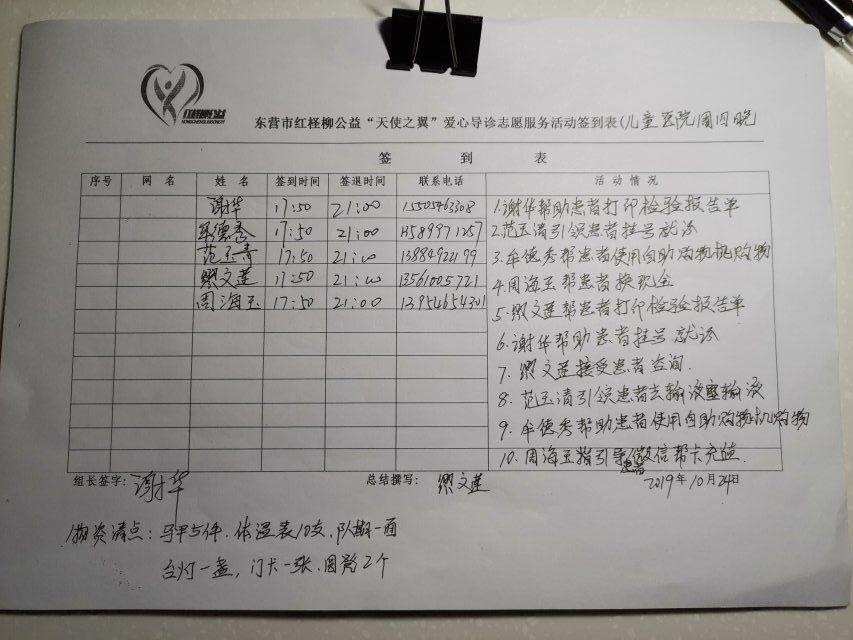 红柽柳公益
HONGCHENGLIUGONGYI
东营市红柽柳公益“天使之翼”爱心导诊志愿服务活动签到表(儿童医院周四晚
签 到 表
序号 网名 姓名 签到时间 签退时间 联系电话 活动情况
谢华 17:50 21:00 15505463308
牟德秀 17:50 21:00
范玉青 17:50 21:00
缪文莲 17:50 21:00 13561005721
周海玉 17:50 21:00 13954654301
1.谢华帮助患者打印检验报告单
2.范玉清引领患者挂号就诊
3.牟德秀帮患者使用自助购物机购物
4.周海玉帮患者换现金
5.缪文莲帮患者打印检验报告单
6.谢华帮助患者挂号就诊
7.缪文莲接受患者咨询.
8.范玉清引领患者去输液室输液
9.牟德秀帮助患者使用自助购物机购物
10.周海玉指引导患者微信帮卡充值.
组长签字:谢华 总结撰写:缪文莲 2019年10月24日
物资清点:马甲5件.体温表10支.队旗一面
台灯一盏,门卡一张.圆凳2个